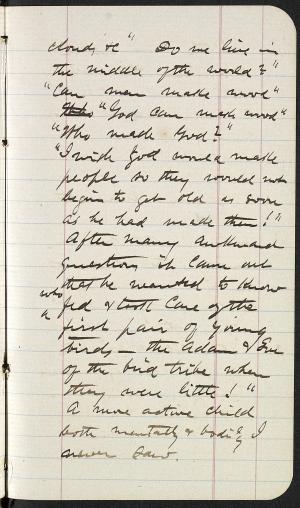 clouds &c" Do we live in
the middle of the world?"
"Can men make wood"
"God can make wood"
"Who made God?"
"I wish God would make
people so they would not
begin to get old as soon
as he had made them!"
After many awkward
questions it came out
that he wanted to know
who fed & took care of the
first pair of young
birds – the Adam & Eve
of the bird tribe when
they were little!"
A more active child
both mentally & bodily I
never saw.